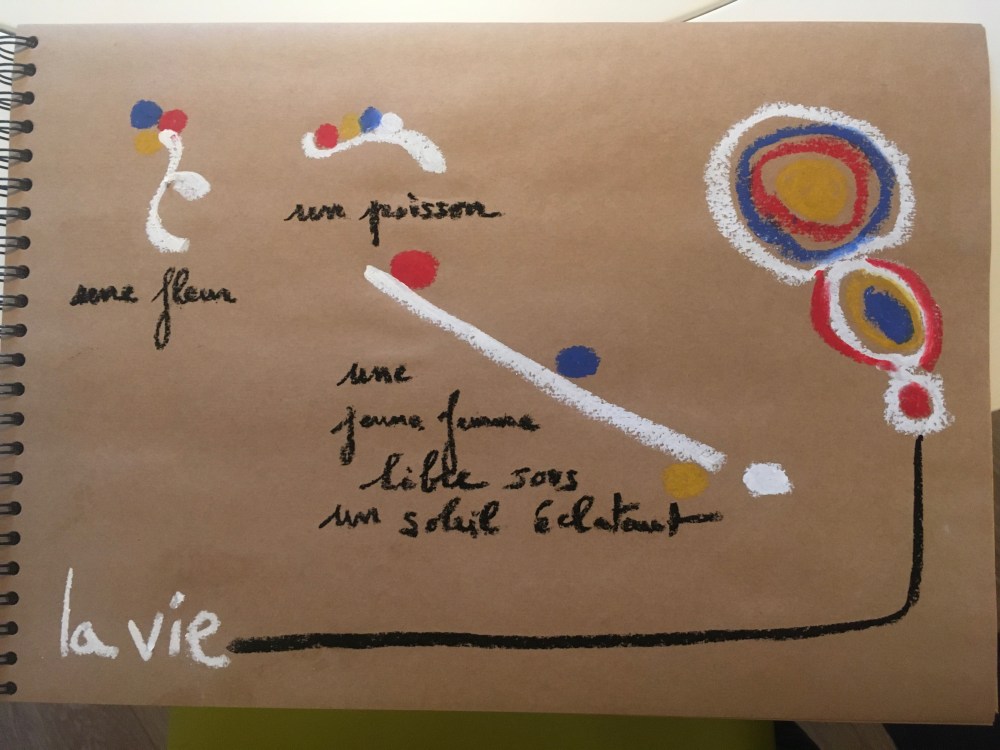 une fleur
un poisson
une
jeune femme
lible sous
un soleil éclatant
la vie